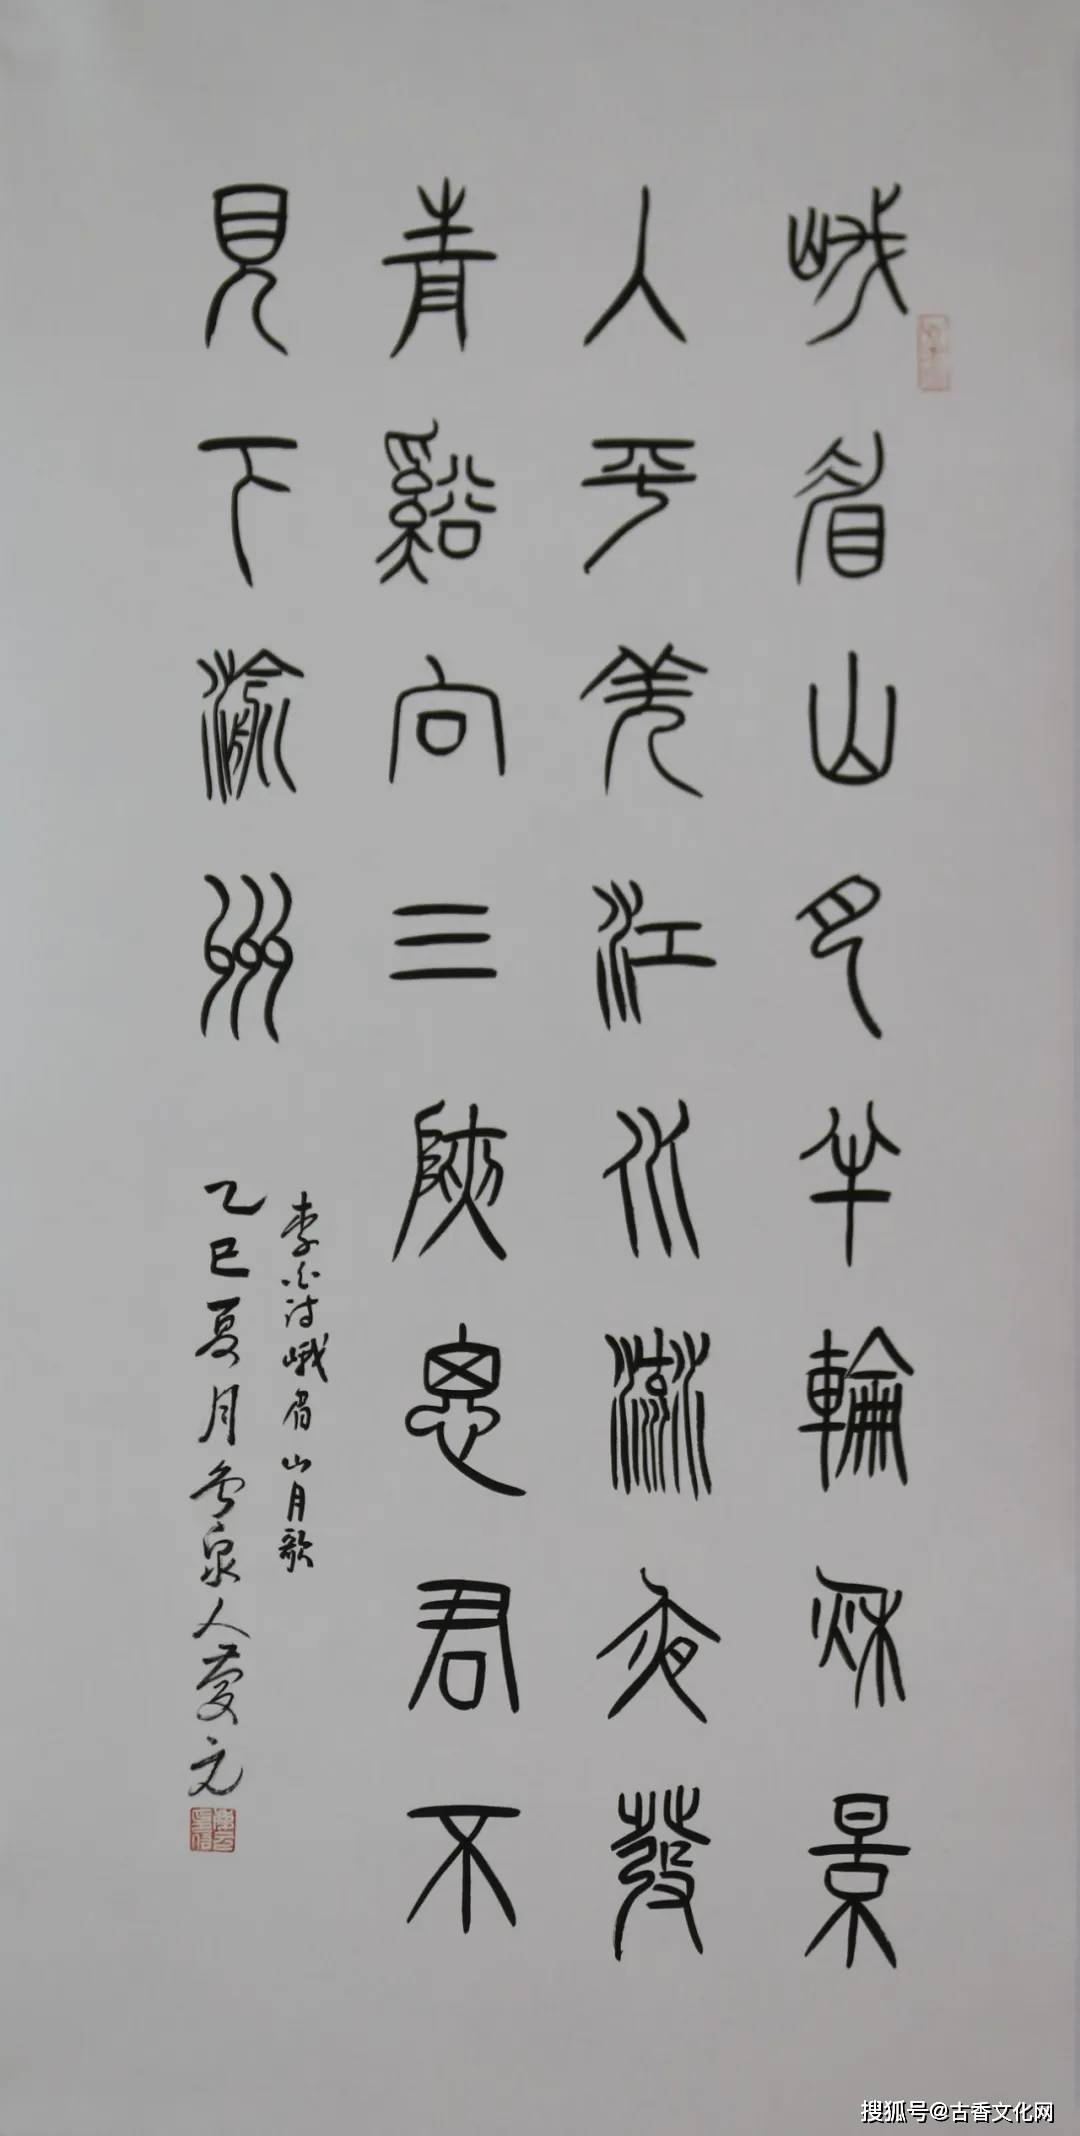 峨眉山月半輪秋景
入平羌江水流夜發
青谿向三陜思君不
見下渝州
李白诗峨眉山月歌
乙巳夏月泉人慶文
搜狐号@古香文化网